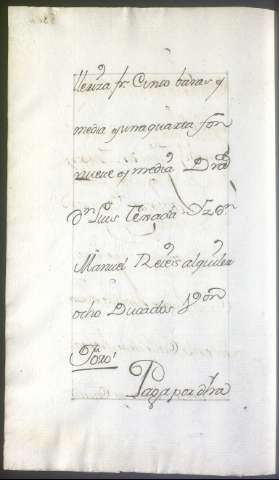 lleriza fr. Cinco baras y
media y una quarta son
nueve y media
Dn Luis Terrada
Manuel Reeis alquiler
ocho Ducados
Paga por dha